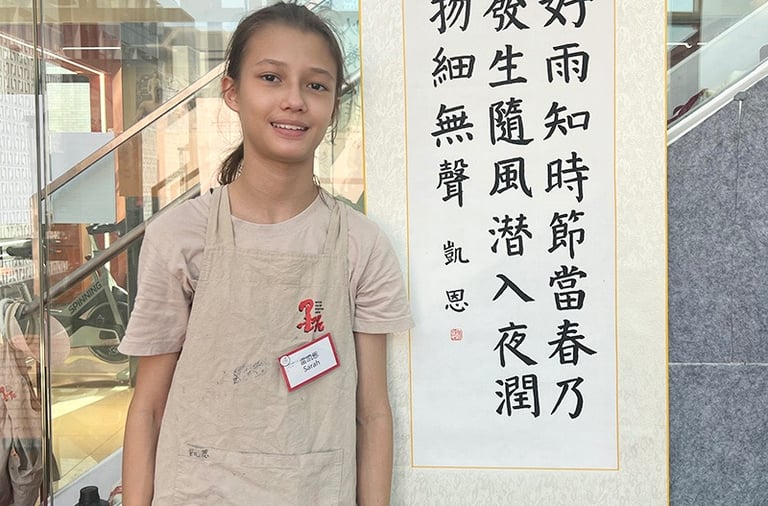 好雨知時節當春乃
發生隨風潜入夜潤
物細無聲
凱恩
Sarah
SPINNING